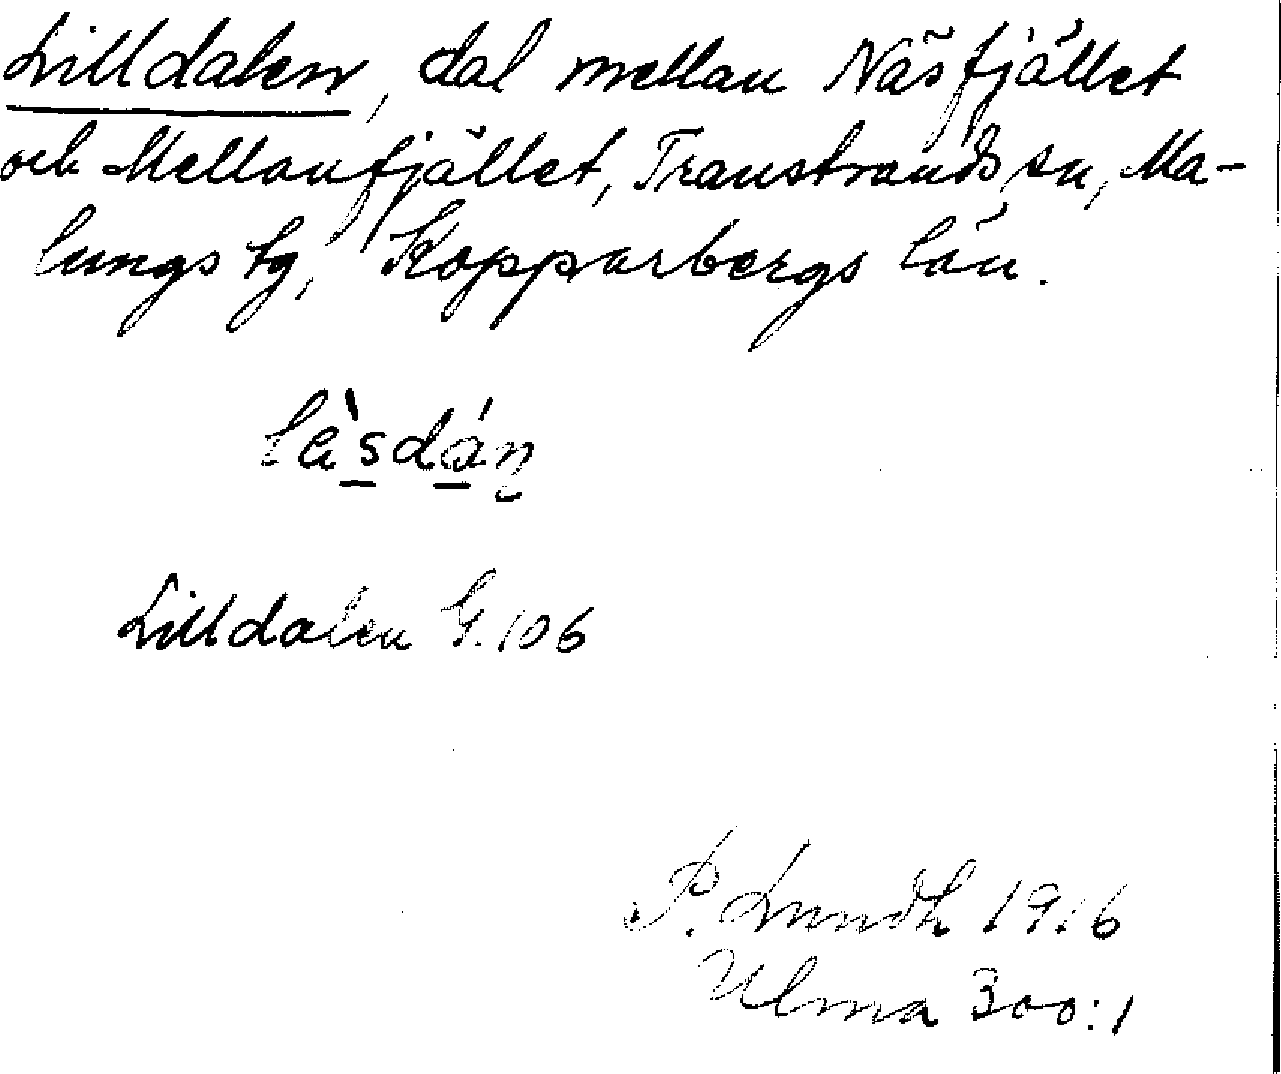 Lilldalen, dal mellan Näsfjället
och Mellanfjället, Transtrands sn, Ma-
lungs tg, Kopparbergs län.
Lilldalen G. 106
P. Lundh 1916
Ulma 300:1